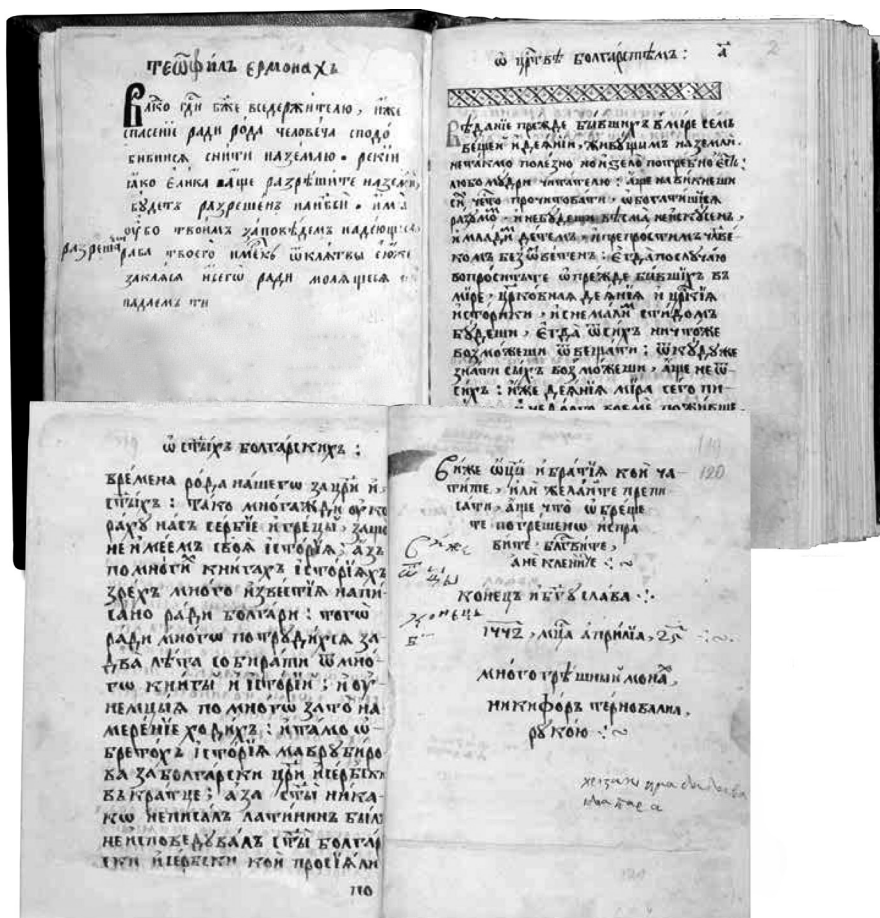 теѡфилъ ермонахъ
Влⷣко гдⷭ҇и бж҃е вседержителю, иже
спасенїе ради рода человеча сподо
бивыися снити на землю. рекїи
іако елика аще разрѣшите на земли,
будетъ разрешен
ѹбо твоимъ заповѣдемъ надеющиса,
раба твоего имекъ ѿ клѧтвы еюже
заклаяся и сего ради молящеся
падаемъ ти
разреши
ѡ црⷭ҇твѣ болгарстѣмъ : а҃
2
Вѣданїе прежде бывшихъ в мїре семъ
вещей и деянїи, живущымъ на земли.
не такмо полезно но и зело потребно естъ:
любомудри читателю: аще навикнеши
си често прочитовати, ѡбогатишися
разумоⷨ, и не будеши весма неискусенъ,
и малдиⷨ детемъ, и препростимъ чл҃ве-
комъ безѿветенъ: егда по случаю
вопросиътъте ѡ прежде бывшїхъ въ
мїре, црⷪ҇ковная деянїя и црⷭ҇кїя
историки, и с не малиⷨ стидомъ
будеши, егда ѿ сихъ ничтоже
возможеши ѿвещати: ѿкудуже
знати сыхъ возможеши, аще не ѿ
сихъ: иже деянїя мїра сего пи-
ѡ ст҃ыхъ болгарскихъ :
времена рода нашегѡ за цр҃и и
ст҃ыхъ: тако многажди ѹко
раху насъ сербїе и грецы, защо
не имеемъ своя исторїя; азъ
по многиⷯ книгахъ исторїяхъ
зрехъ много извѣстїя напи-
сано ради болгари: тогѡ
ради многѡ потрудихся за
два лѣта собирати ѿ мно-
гѡ книгы и исторїи; и оу
немцыя по многѡ за то на
меренїе ходихъ: и тамо ѡ-
бретохъ исторїя мавруб҃иро-
ва за болгарски цр҃и и сербски
въкратце; а за ст҃ы ника-
кѡ не писалъ латинин былъ
не исповедувалъ ст҃ы болгар
ски и сербски кои просїяли
110
119
120
Сиже ѿцы и братїя кои ча-
тите, или желаите препи
сати, аще что ѡбреще
те погрешенѡ испра
вите бл҃гвите,
а не клените :~
конецъ и бг҃у слава :·
1772, мцⷭ҇а априлїа, 25 :~
многогрѣшныи монаⷯ.
никифоръ тернобалил,
рукою :~
Сиже
ѿцы
конецъ